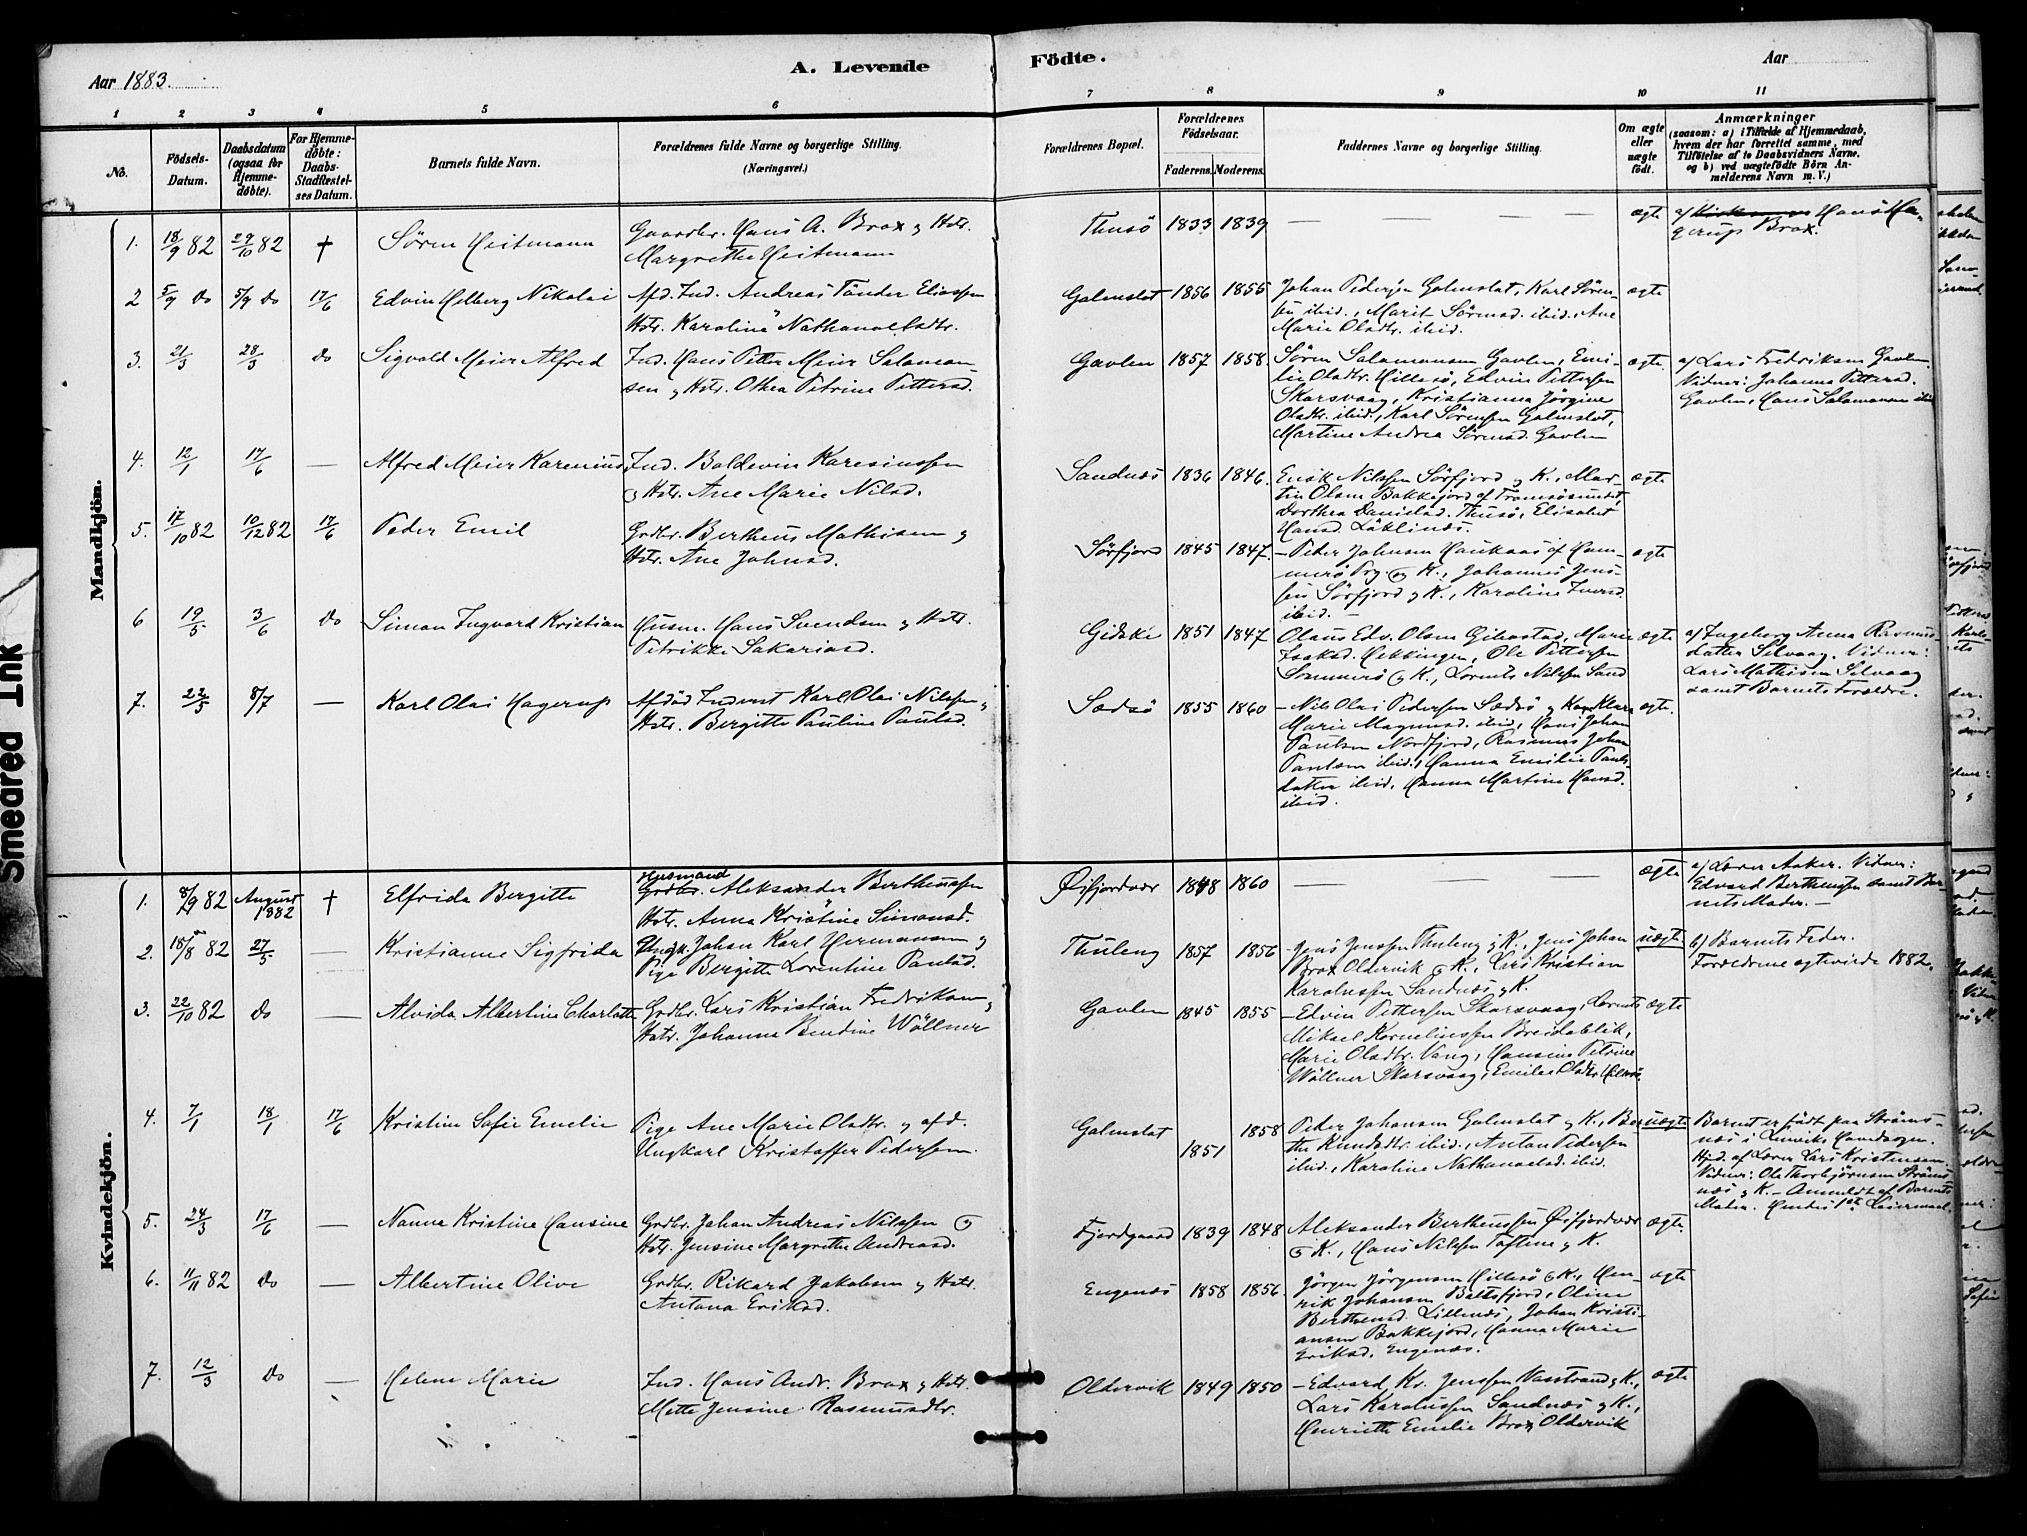 Aar 1883.
A. Levende Födte.
Aar
1 2 3 4 5 6 7 8 9 10 11
No.
Födsels-Datum.
Daabsdatum (ogsaa for Hjemme-döbte).
For Hjemme-döbte: Daabs-Stadfæstel-ses Datum.
Barnets fulde Navn.
Forældrenes fulde Navne og borgerlige Stilling.
(Næringsvei.)
Forældrenes Bopæl.
Forældrenes Födselsaar.
Faderens. Moderens.
Faddernes Navne og borgerlige Stilling.
Om ægte eller uægte født.
Anmærkninger
(saasom: a) i Tilfælde af Hjemmedaab, hvem der har forrettet samme, med Tilføielse af to Daabsvidners Navne, og b) ved uægtefödte Börn An-melderens Navn m. V.)
Mandkjön.
1. 18/9 82 29/10 82 † Søren Heitmann
Gaardbr. Hans A. Brox og Hstr.
Margrethe Heitmann
Thusö 1833 1839 — — — — ægte
a) Hans Ha-
gerup Brox.
2 5/9 Do 5/9 Do 17/6 Edvin Helberg Nikolai
Afd. Ind. Andreas Tönder Eliassen
Hstr. Karoline Nathanaelsdtr.
Galmslat 1856 1855
Johan Pedersen Galmslat, Karl Sören-
sen ibid., Marit Sörensd. ibid., Ane
Marie Olsdtr. ibid.
ægte
3. 21/3 28/3 Do Sigvald Meier Alfred
Ind. Hans Petter Meier Salamon-
sen og Hstr. Othea Petrine Pettersd.
Gavlen 1857 1858.
Sören Salamonsen Gavlen, Emi-
lie Olsdtr. Hillesö, Edvin Pettersen
Skarsvaag, Kristianna Jörgine
Olsdtr. ibid., Karl Sörensen Galmslat,
Martine Andrea Sörensd. Gavlen
ægte.
a) Lars Fredriksen Gavlen.
Vidner: Johanna Pettersd.
Gavlen, Hans Salamonsen ibid
4. 12/1 17/6 — Alfred Meier Karenius
Ind. Boldevin Karesiussen
og Hstr. Ane Marie Nilsd.
Sandnæs 1836 1846.
Enok Nilssen Sörfjord og K., Mar-
tin Olsen Bakkejord af Tromsösundet,
Dorthea Danielsd. Thusö, Elisabet
Hansd. Läklinæs.
ægte
5. 17/10 82 10/12 82 17/6 Peder Emil
Grdbr. Bertheus Mathisen og
Hstr. Ane Johnsd.
Sörfjord 1845 1847.
— Peder Johnsen Haukaas af Ham-
merö Prg. og K., Johannes Jens-
sen Sörfjord og K., Karoline Iversd.
ibid. —
ægte
6 19/5 3/6 Do Simon Ingvard Kristian
Husm. Hans Svendsen og Hstr.
Petrikke Sakariasd.
Gidski 1851 1847
Olaus Edv. Olsen Gibostad, Marie
Isaksd. Hekkingen, Ole Pettersen
Sommerö og K., Lorents Nilssen Sand
ægte
a) Ingeborg Anna Rasmus-
datter Selvaag. Vidner:
Lars Mathisen Selvaag
samt Barnets Forældre.
7. 22/5 8/7 — Karl Olai Hagerup
Afdöd Inderst Karl Olai Nilssen og
Hstr. Bergitte Pauline Paulsd.
Sædsö 1855 1860
— Nils Olai Pedersen Sædsö og Klara
Marie Magnusd. ibid., Hans Johan
Paulsen Nordfjord, Rasmus Johan
Paulsen ibid., Hanna Emilie Pauls-
datter ibid., Hanna Martine Hansd.
ibid.
ægte.
Kvindekjön.
1. 82 August 1882 † Elfrida Bergitte
Husmand
Grdbr. Aleksander Bertheussen
Hstr. Anna Kristine Simonsd.
Øifjordvær 1848 1860 — — — ægte
a) Lærer Aaker. Vidner:
Edvard Bertheussen samt Bar-
nets Moder. —
2. 18/8 82 27/5 — Kristianne Sigfrida
Ungk. Johan Karl Hermansen og
Pige Bergitte Lorentine Paulsd.
Thuleng 1857 1856
Jens Jenssen Thuleng og K., Jens Johan
Brox Oldervik og K., Lars Kristian
Karolussen Sandnæs og K.
uægte
b) Barnets Fader.
Forældrene ægteviede 1882.
3. 22/10 82 Do — Alvida Albertine Charlotte
Grdbr. Lars Kristian Fredriksen og
Hstr. Johanna Bendine Wöllner
Gavlen 1845 1855
— Edvin Pettersen Skarsvaag, Lorents
Mikael Korneliussen Breidablik,
Marie Olsdtr. Vang, Hansine Petrine
Wöllner Skarsvaag, Emilie Olsdtr. Hillesö.
ægte
4. 7/1 18/1 17/6 Kristine Sofie Emelie
Pige Ane Marie Olsdtr. og afd.
Ungkarl Kristoffer Pedersen.
Galmslat 1851 1858
Peder Johansen Galmslat og K., Ber-
the Knudsdtr. ibid., Anton Pedersen
ibid., Karoline Nathanaelsd. ibid.
uægte
Barnet er födt paa Ströms-
næs i Lenviks Hovedsogn.
Hjd. af Lærer Lars Kristensen.
Vidner: Ole Thorbjörnsen Ströms-
næs og K. — Anmeldt af Barnets
Moder. Hendes 1ste Leiermaal.
5. 24/3 17/6 — Nanna Kristine Hansine
Grdbr. Johan Andreas Nilssen og
Hstr. Jensine Margrethe Andreasd.
Fjordgaard 1839 1848
Aleksander Bertheussen Øifjordvær
og K., Hans Nilssen Toftene og K.
ægte.
6. 11/11 82 Do — Albertine Olive
Grdbr. Rikard Jakobsen og Hstr.
Antona Eriksd.
Engenæs 1858 1856.
Jörgen Jörgensen Hillesö og K., Hen-
rik Johansen Baltsfjord, Oline
Bertheusd. Lillenæs, Johan Kristi-
ansen Bakkejord, Hanna Marie
Eriksd. Engenæs.
ægte
7. 12/3 Do — Helene Marie
Ind. Hans Andr. Brox og Hstr.
Mette Jensine Rasmusdtr.
Oldervik 1849 1850
— Edvard Kr. Jenssen Vasstrand og K.,
Lars Karolussen Sandnæs og K.,
Henriette Emelie Brox Oldervik
ægte
Smeared Ink